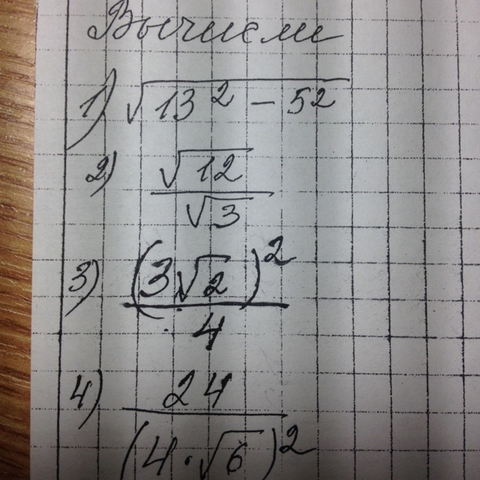 Вычисли
1) √(13² - 5²)
2) √12 / √3
3) (3√2)² / 4
4) 24 / (4·√6)²